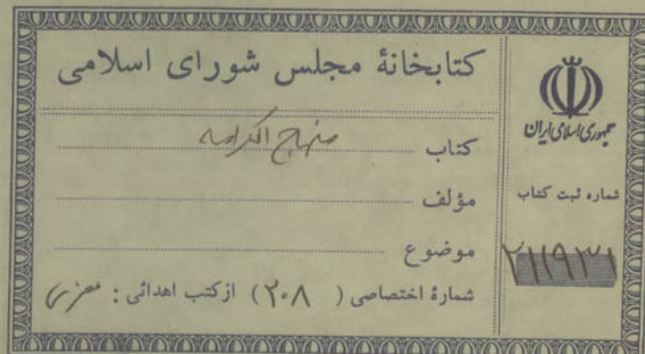 کتابخانهٔ مجلس شورای اسلامی
کتاب منهاج الکرامه
مؤلف
موضوع
شمارهٔ اختصاصی ( ۲۰۸ ) از کتب اهدائی :
جمهوری اسلامی ایران
شماره ثبت کتاب
۲۱۱۹۳۱